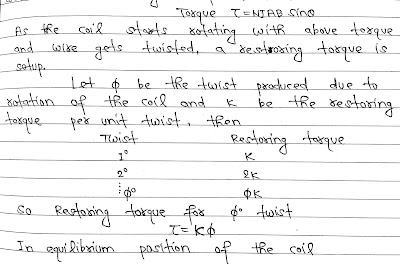 Torque τ=NIAB sinθ
As the coil starts rotating with above torque
and wire gets twisted, a restroring torque is
setup.
Let φ be the twist produced due to
rotation of the coil and K be the restoring
torque per unit twist, then
Twist Restoring torque
1° K
2° 2K
⋮φ° φK
So Restoring torque for φ° twist
τ=Kφ
In equilibrium position of the coil